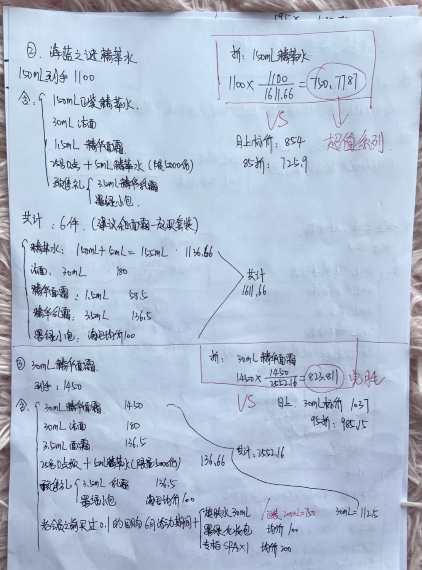 ②. 海蓝之谜 精萃水
150mL 到手 1100
含:
150mL 正装精萃水.
30mL 洁面
1.5mL 精华面霜
258积点 + 5mL精萃水 (限5000份)
预售礼 3.5mL 精华乳霜
墨绿小包.
共计: 6件. (建议和面霜一起取套装)
精萃水: 150mL+5mL=155mL · 1136.66
洁面: 30mL 180
精华面霜: 1.5mL 58.5
精华乳霜: 3.5mL 136.5
墨绿小包: 淘宝均价100
共计
1611.66
折: 150mL 精萃水
1100 × 1100/1611.66 = 750.7787
VS
超值系列
日上标价: 854
85折: 725.9
② 30mL 精华面霜
到手: 1450
含:
30mL 精华面霜 1450
30mL 洁面 180
3.5mL 面霜 136.5
258积点 + 5mL精萃水 (限量5000份) 136.66
预售礼 3.5mL 乳霜 136.5
墨绿小包 淘宝均价100
共计: 2552.16
折: 30mL 精华面霜
1450 × 1450/2552.16 = 823.811
完胜
VS
日上: 30mL标价 1037
95折: 985.15
老会员之前买过 0.1 的回购 6月活动期间 +
30mL 200mL=750 30mL=112.5
墨绿化妆包 均价100
专柜SPA×1 均价200